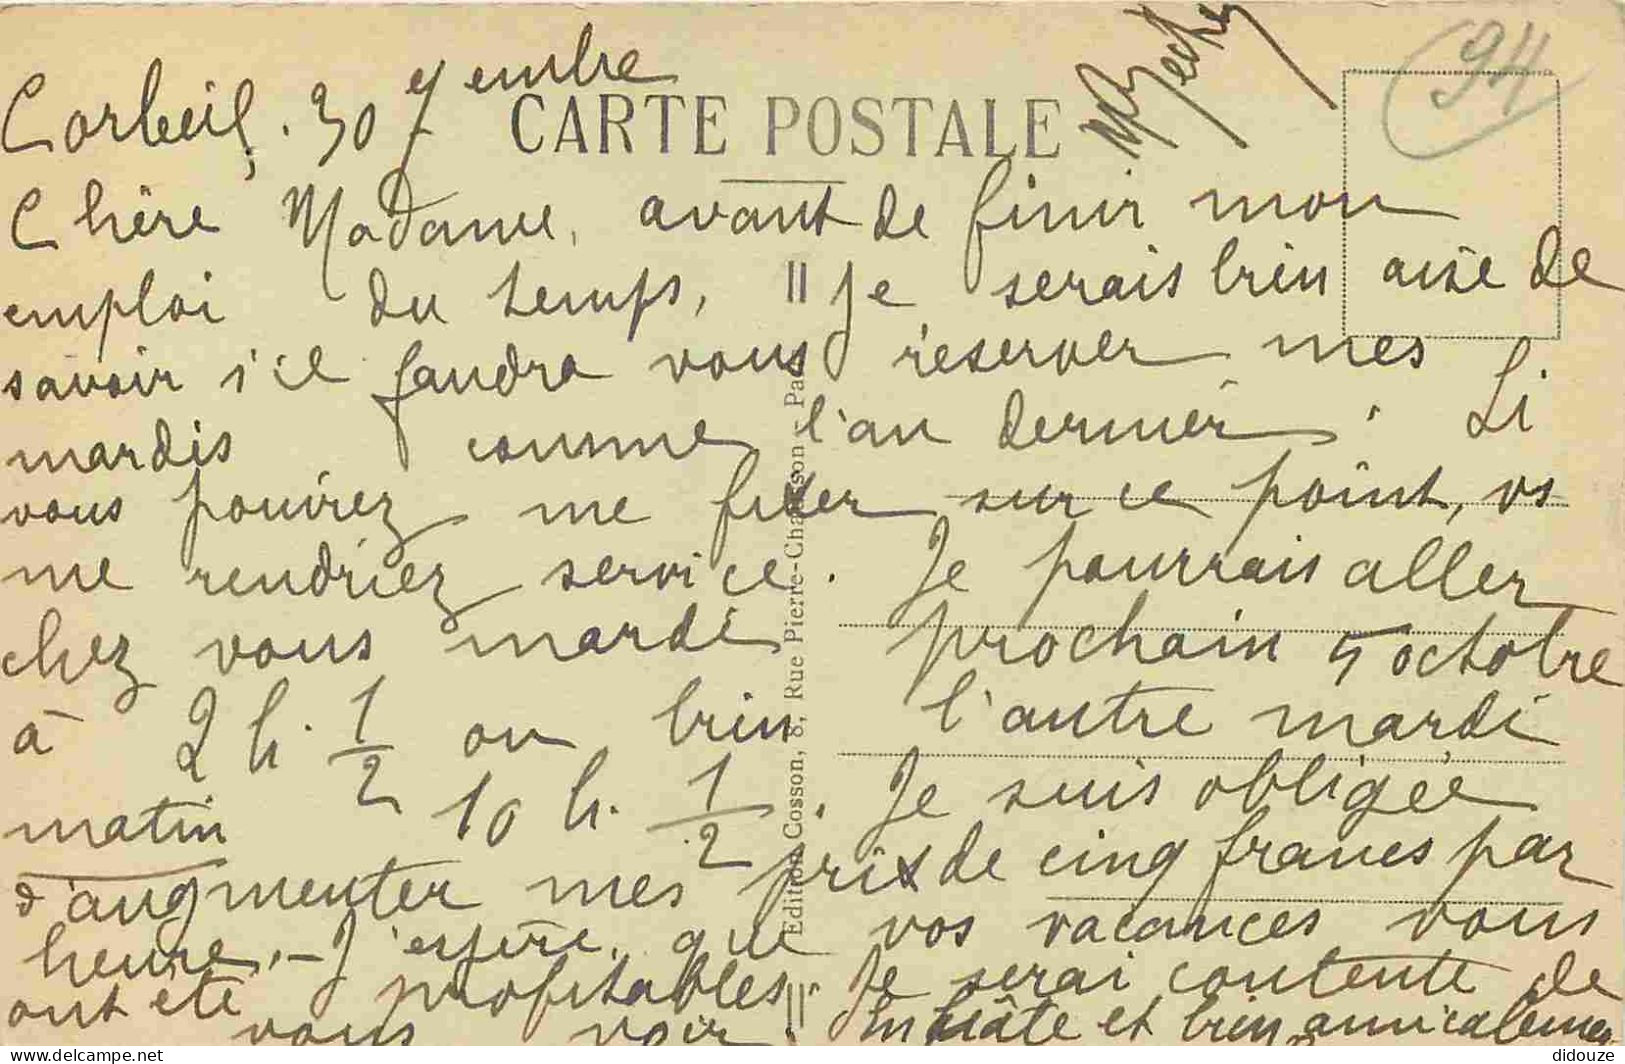 94
Corbeil. 30 7embre
CARTE POSTALE
Chère Madame, avant de finir mon
emploi du temps, je serais bien aise de
savoir s'il faudra vous réserver mes
mardis comme l'an dernier. Si
vous pouviez me fixer sur ce point, vs
me rendriez service. Je pourrais aller
chez vous mardi prochain 5 octobre
à 2 h. 1/2 ou bien l'autre mardi
matin 10 h. 1/2. Je suis obligée
d'augmenter mes prix de cinq francs par
heure. – J'espère que vos vacances vous
ont été profitables. Je serai contente de
vous voir. En hâte et bien amicalement
Edition Cosson, 8, Rue Pierre-Chausson, Paris
didouze